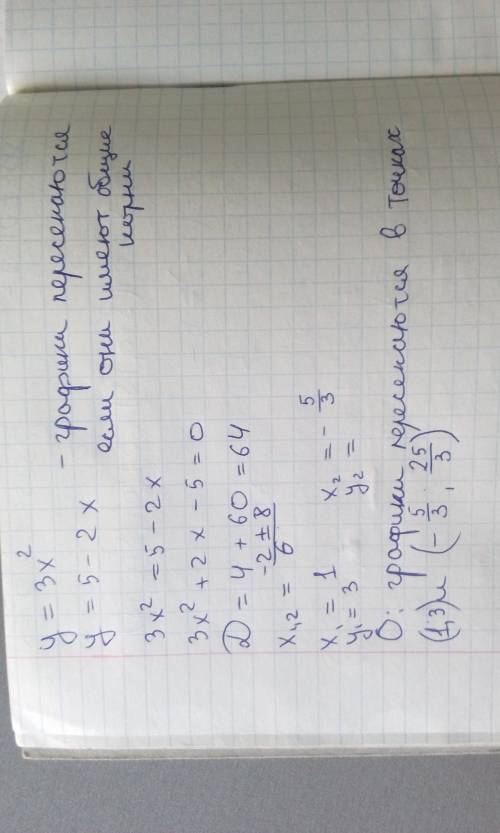 y = 3x² - графики пересекаются
y = 5 - 2x если они имеют общие
корни
3x² = 5 - 2x
3x² + 2x - 5 = 0
D = 4 + 60 = 64
x₁,₂ = (-2 ± 8)/6
x₁ = 1 x₂ = - 5/3
y₁ = 3 y₂ =
О: графики пересекаются в точках
(1; 3) и (- 5/3; 25/3)